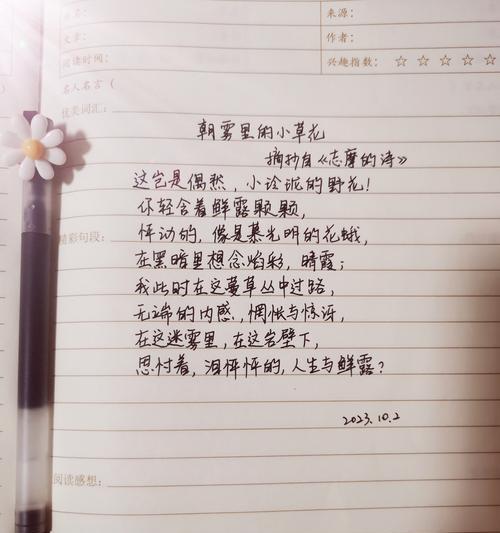 名：
来源：
文章：
作者：
阅读时间：
兴趣指数：☆ ☆ ☆ ☆ ☆
名人名言（
优美词汇：
朝雾里的小草花
摘抄自《志摩的诗》
这岂是偶然，小泠泥的野花！
你轻含着鲜露颗颗，
怦动的，像是慕光明的花蛾，
在黑暗里想念焰彩，晴霞；
精彩句段：
我此时在这蔓草丛中过路，
无端的内感，惘怅与惊讶，
在这迷雾里，在这岩壁下，
思忖着，泪怦怦的，人生与鲜露？
2023.10.2
阅读感想：